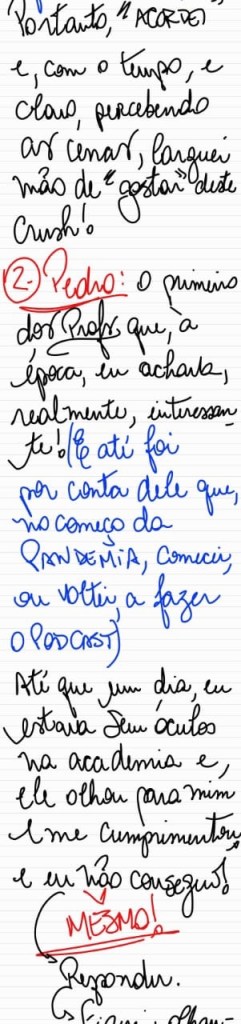 Portanto, "ACORDEI"
e, com o tempo, e
claro, percebendo
as cenas, larguei
mão de "gostar" deste
crush!
2. Pedro: o primeiro
dos Profs, que, à
época, eu achava,
realmente, interessan-
te! (E até foi
por conta dele que,
no começo da
PANDEMIA, comecei,
ou voltei, a fazer
O PODCAST)
Até que um dia, eu
estava sem óculos
na academia e,
ele olhou para mim
e me cumprimentou
e eu não consegui!
MESMO!
Responder.